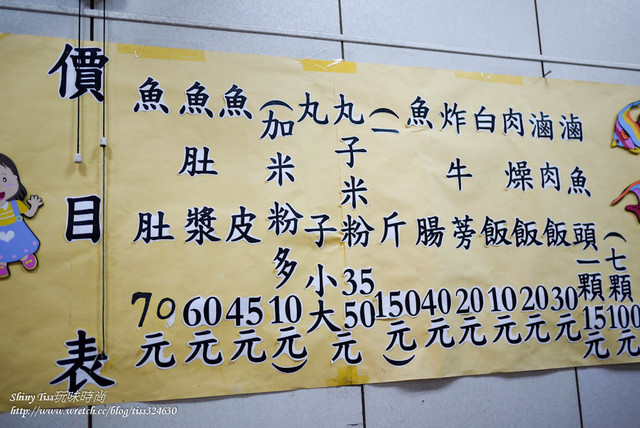 價目表
魚肚70元
魚肚漿60元
魚皮45元
(加米粉多10元)
丸子小大
丸子米粉3550元
(一斤150元)
魚腸40元
炸牛蒡20元
白飯10元
肉燥飯20元
滷肉飯30元
滷魚頭一顆15元
(七顆100元
Shiny Tiss玩味時尚
http://www.wretch.cc/blog/tiss324630